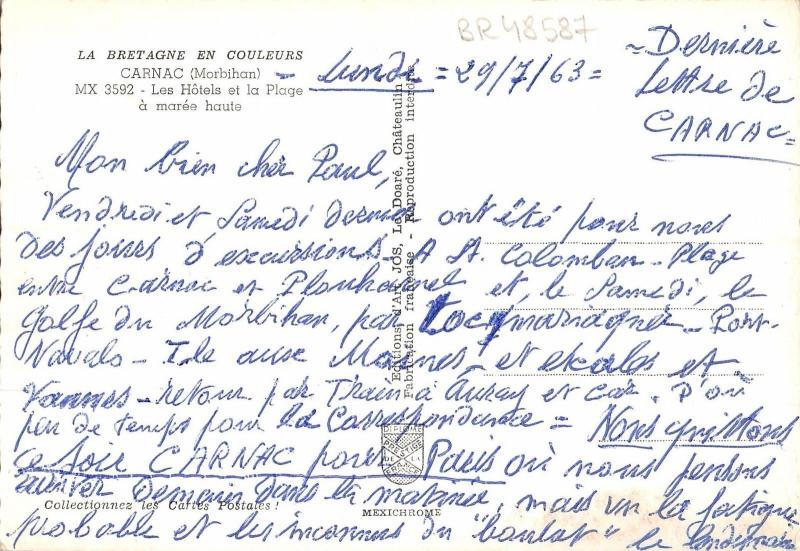 BR48587
LA BRETAGNE EN COULEURS
CARNAC (Morbihan)
MX 3592 - Les Hôtels et la Plage
à marée haute
- Lundi = 29/7/63 =
= Dernière
lettre de
CARNAC =
Mon bien cher Paul,
Vendredi et Samedi derniers ont été pour nous
des jours d'excursions - A St. Colomban - Plage
entre Carnac et Plouharnel et, le Samedi, le
Golfe du Morbihan, par Locmariaquer - Port-
Navalo - Ile aux Moines - et escales et
Vannes - retour par Train à Auray et car. D'où
peu de temps pour la Correspondance = Nous quittons
ce soir CARNAC pour Paris où nous pensons
arriver demain dans la matinée, mais vu la fatigue
probable et les inconnus du "boulot" le lendemain
Editions d'Art JOS, Le Doaré, Châteaulin
Fabrication française - Reproduction interdite
DIPLOME
PRESTIGE
DE LA
FRANCE
Collectionnez les Cartes Postales !
MEXICHROME